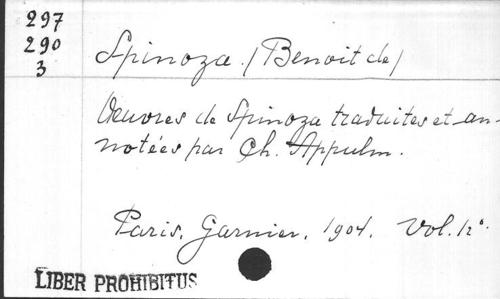 297
290
3
Spinoza. (Benoit de)
Oeuvres de Spinoza traduites et an-
notées par Ch. Appuhn.
Paris. Garnier. 1904. Vol. 12°.
LIBER PROHIBITUS